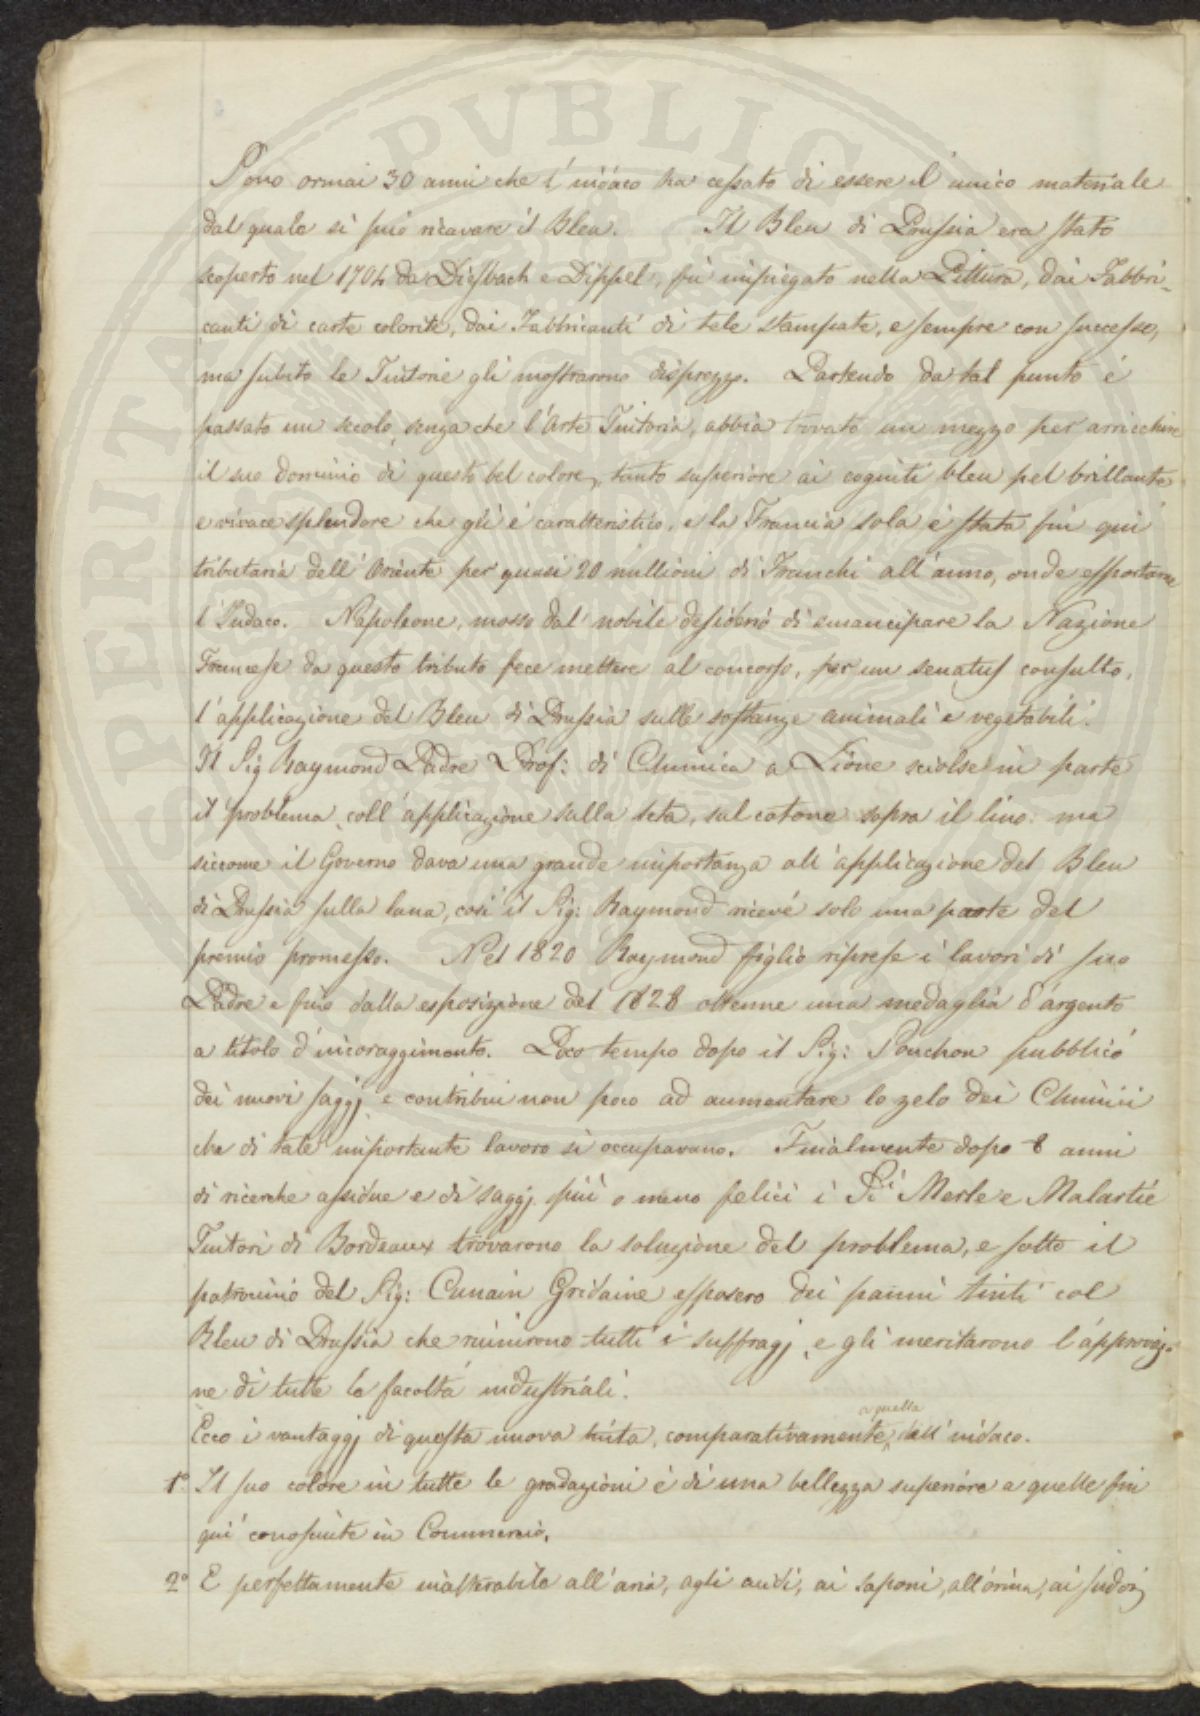 Sono ormai 30 anni che l'indaco ha cessato di essere il unico materiale
dal quale si può ricavare il Bleu. Il Bleu di Prussia era stato
scoperto nel 1704 da Diesbach e Dippel, fù impiegato nella Pittura, dai Fabbri-
canti di carte colorite, dai Fabbricanti di tele stampate, e sempre con successo,
ma subito le Tintorie gli mostrarono disprezzo. Partendo da tal punto è
passato un secolo, senza che l'Arte Tintoria, abbia trovato un mezzo per arricchire
il suo dominio di questo bel colore, tanto superiore ai cogniti bleu pel brillante
e vivace splendore che gli è caratteristico, e la Francia sola è stata fin qui
tributaria dell'Oriente per quasi 20 millioni di Franchi all'anno, onde esportarne
l'Indaco. Napoleone, mosso dal nobile desiderio di emancipare la Nazione
Francese da questo tributo fece mettere al concorso, per un senatus consulto,
l'applicazione del Bleu di Prussia sulle sostanze animali e vegetabili.
Il Sig Raymond Padre Prof: di Chimica a Lione sciolse in parte
il problema coll'applicazione sulla seta, sul cotone sopra il lino: ma
siccome il Governo dava una grande importanza all'applicazione del Bleu
di Prussia sulla lana, così il Sig: Raymond ricevé solo una parte del
premio promesso. Nel 1820 Raymond figlio riprese i lavori di suo
Padre e fino dalla esposizione del 1828 ottenne una medaglia d'argento
a titolo d'incoraggimento. Poco tempo dopo il Sig: Souchon pubblicò
dei nuovi saggj e contribuì non poco ad aumentare lo zelo dei Chimici
che di tale importante lavoro si occupavano. Finalmente dopo 8 anni
di ricerche assidue e di saggj più o meno felici i Si.i Merle e Malartic
Tintori di Bordeaux trovarono la soluzione del problema, e sotto il
patrocinio del Sig: Cunain Gridaine esposero dei panni tinti col
Bleu di Prussia che riunirono tutti i suffragj, e gli meritarono l'approvazio
ne di tutte le facoltà industriali.
Ecco i vantaggj di questa nuova tinta, comparativamente a quella dell'indaco.
1° Il suo colore in tutte le gradazioni è di una bellezza superiore a quelle fin
qui conosciute in Commercio.
2° E perfettamente inalterabile all'aria, agli acidi, ai saponi, all'orina, ai sudori